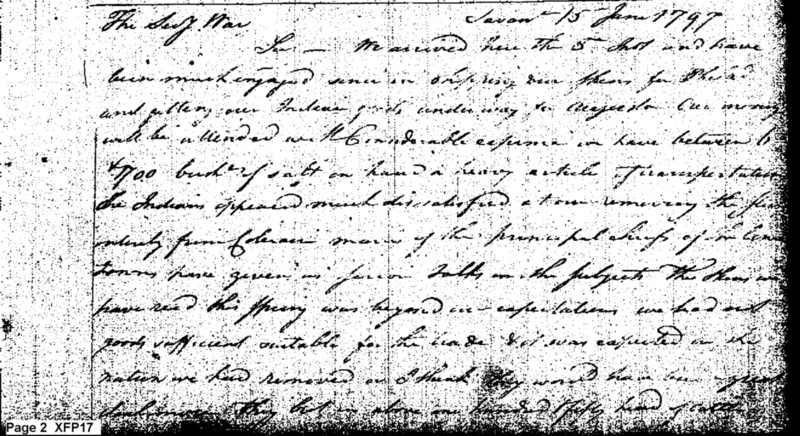 The Secy. War Savanh 15 June 1797
Sir — We arrived here the 5 Inst and have
been much engaged since in shipping our skins for Philad
and getting our Indian goods underway for Augusta Our moving
will be attended with Considerable expense we have between 6
& 700 bushs. of salt on hand a heavy article of transportation
the Indians appeared much dissatisfied at our removing the
entirely from Colerain many of the principal chiefs of the
towns have given us talks on the subject the
have recd this spring was beyond our expectations we had not
goods sufficient suitable for the trade & it was expected in the
nation we had removed or I think they would have been
they
Page 2 XFP17